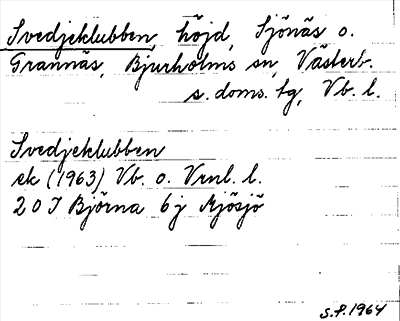 Svedjeklubben, höjd, Sjönäs o.
Grannäs, Bjurholms sn, Västerb.
s. doms. tg, Vb. l.
Svedjeklubben
ek (1963) Vb. o. Vrnl. l.
20 I Björna 6j Mjösjö
S.P. 1964